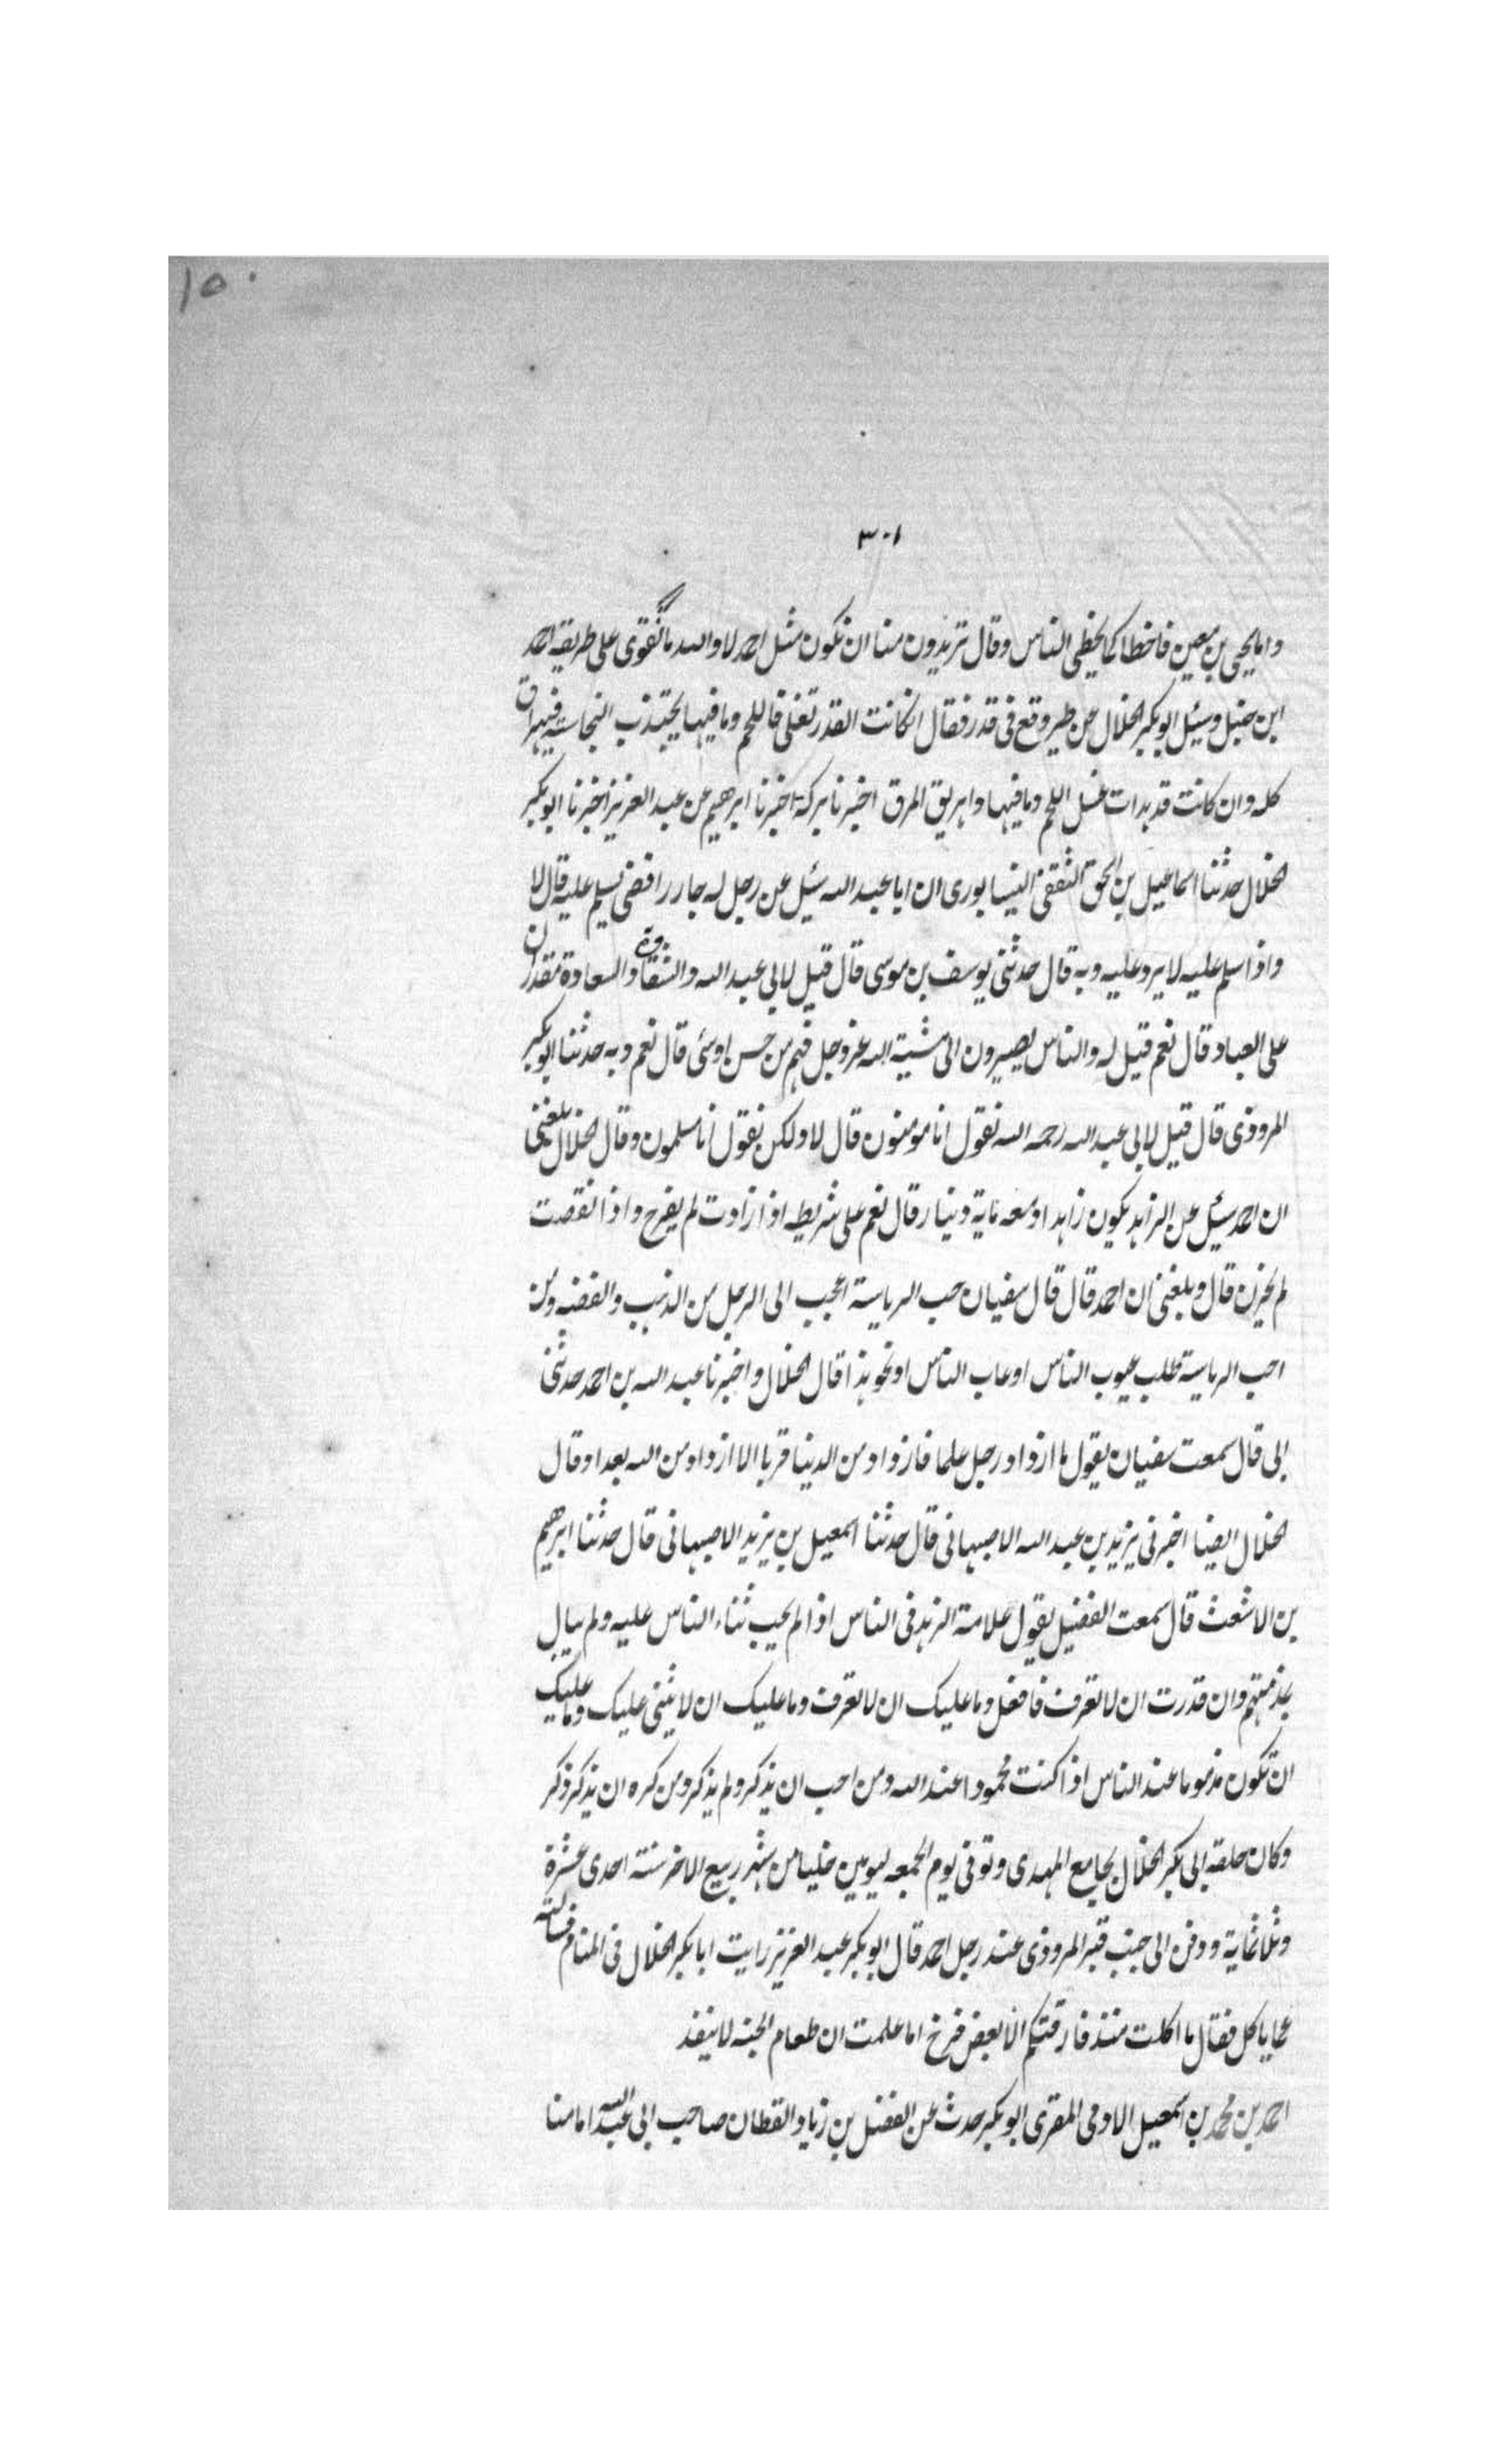 ١٥٠
٣٠١
واما يحيى بن معين فاخطا كما يخطى الناس وقال تريدون منا ان نكون مثل احمد لا والله ما نقوى على طريقه احمد
ابن حنبل وسئل ابو بكر الخلال عن طير وقع فى قدر فقال ان كانت القدر تغلى فاللحم وما فيها يجتذب النجاسة فيهراق
كله وان كانت قد بدات غسل اللحم وما فيها واهريق المرق اخبرنا بركة اخبرنا ابرهيم عن عبد العزيز اخبرنا ابو بكر
الخلال حدثنا اسماعيل بن اسحق الثقفى النيسابورى ان ابا عبد الله سئل عن رجل له جار رافضى يسلم عليه قال لا
واذا سلم عليه لا يرد عليه وبه قال حدثنى يوسف بن موسى قال قيل لابى عبد الله والشقاوة والسعادة مقدران
على العباد قال نعم قيل له والناس يصيرون الى مشية الله عز وجل فيهم من حسن او سئ قال نعم وبه حدثنا ابو بكر
المروذى قال قيل لابى عبد الله رحمه الله نقول انا مومنون قال لا ولكن نقول انا مسلمون وقال الخلال بلغنى
ان احمد سئل عن الزاهد يكون زاهدا ومعه ماية دينار قال نعم على شريطه اذا زادت لم يفرح واذا نقصت
لم يحزن قال وبلغنى ان احمد قال قال سفيان حب الرياسة اعجب الى الرجل من الذهب والفضه ومن
احب الرياسة طلب عيوب الناس او عاب الناس او نحو هذا قال الخلال واخبرنا عبد الله بن احمد حدثنى
ابى قال سمعت سفيان يقول ما ازداد رجل علما فازداد من الدنيا قربا الا ازداد من الله بعدا وقال
الخلال ايضا اخبرنى يزيد بن عبد الله الاصبهانى قال حدثنا اسمعيل بن يزيد الاصبهانى قال حدثنا ابرهيم
بن الاشعث قال سمعت الفضيل يقول علامة الزهد فى الناس اذا لم يحب ثناء الناس عليه ولم يبال
بمذمتهم وان قدرت ان لا تعرف فافعل وما عليك ان لا تعرف وما عليك ان لا يثنى عليك وما عليك
ان تكون مذموما عند الناس اذا كنت محمودا عند الله ومن احب ان يذكر ولم يذكر ومن كره ان يذكر ذكر
وكان حلقة ابى بكر الخلال بجامع المهدى وتوفى يوم الجمعه ليومين خليا من شهر ربيع الاخر سنة احدى عشرة
وثلاثماية ودفن الى جنب قبر المروذى عند رجل احمد قال ابو بكر عبد العزيز رايت ابا بكر الخلال فى المنام فسالته
عما ياكل فقال ما اكلت منذ فارقتكم الا بعض فرخ اما علمت ان طعام الجنه لا ينفذ
احمد بن محمد بن اسمعيل الادمى المقرى ابو بكر حدث عن الفضل بن زياد القطان صاحب ابى عبد الله امامنا